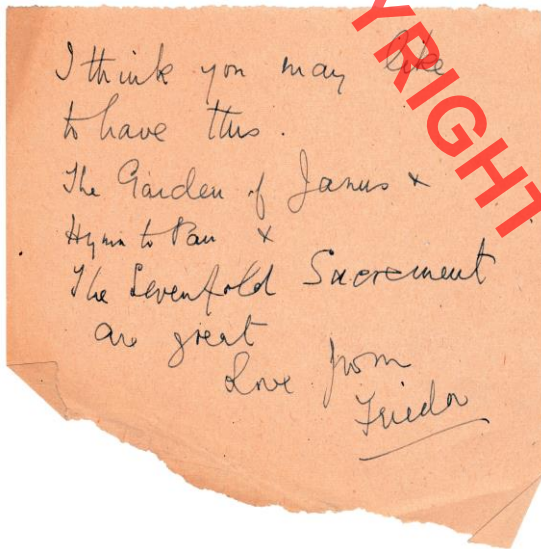 I think you may like
to have this.
The Garden of Janus +
Hymn to Pan +
The Sevenfold Sacrement
are great
Love from
Frieda
YRIGHT